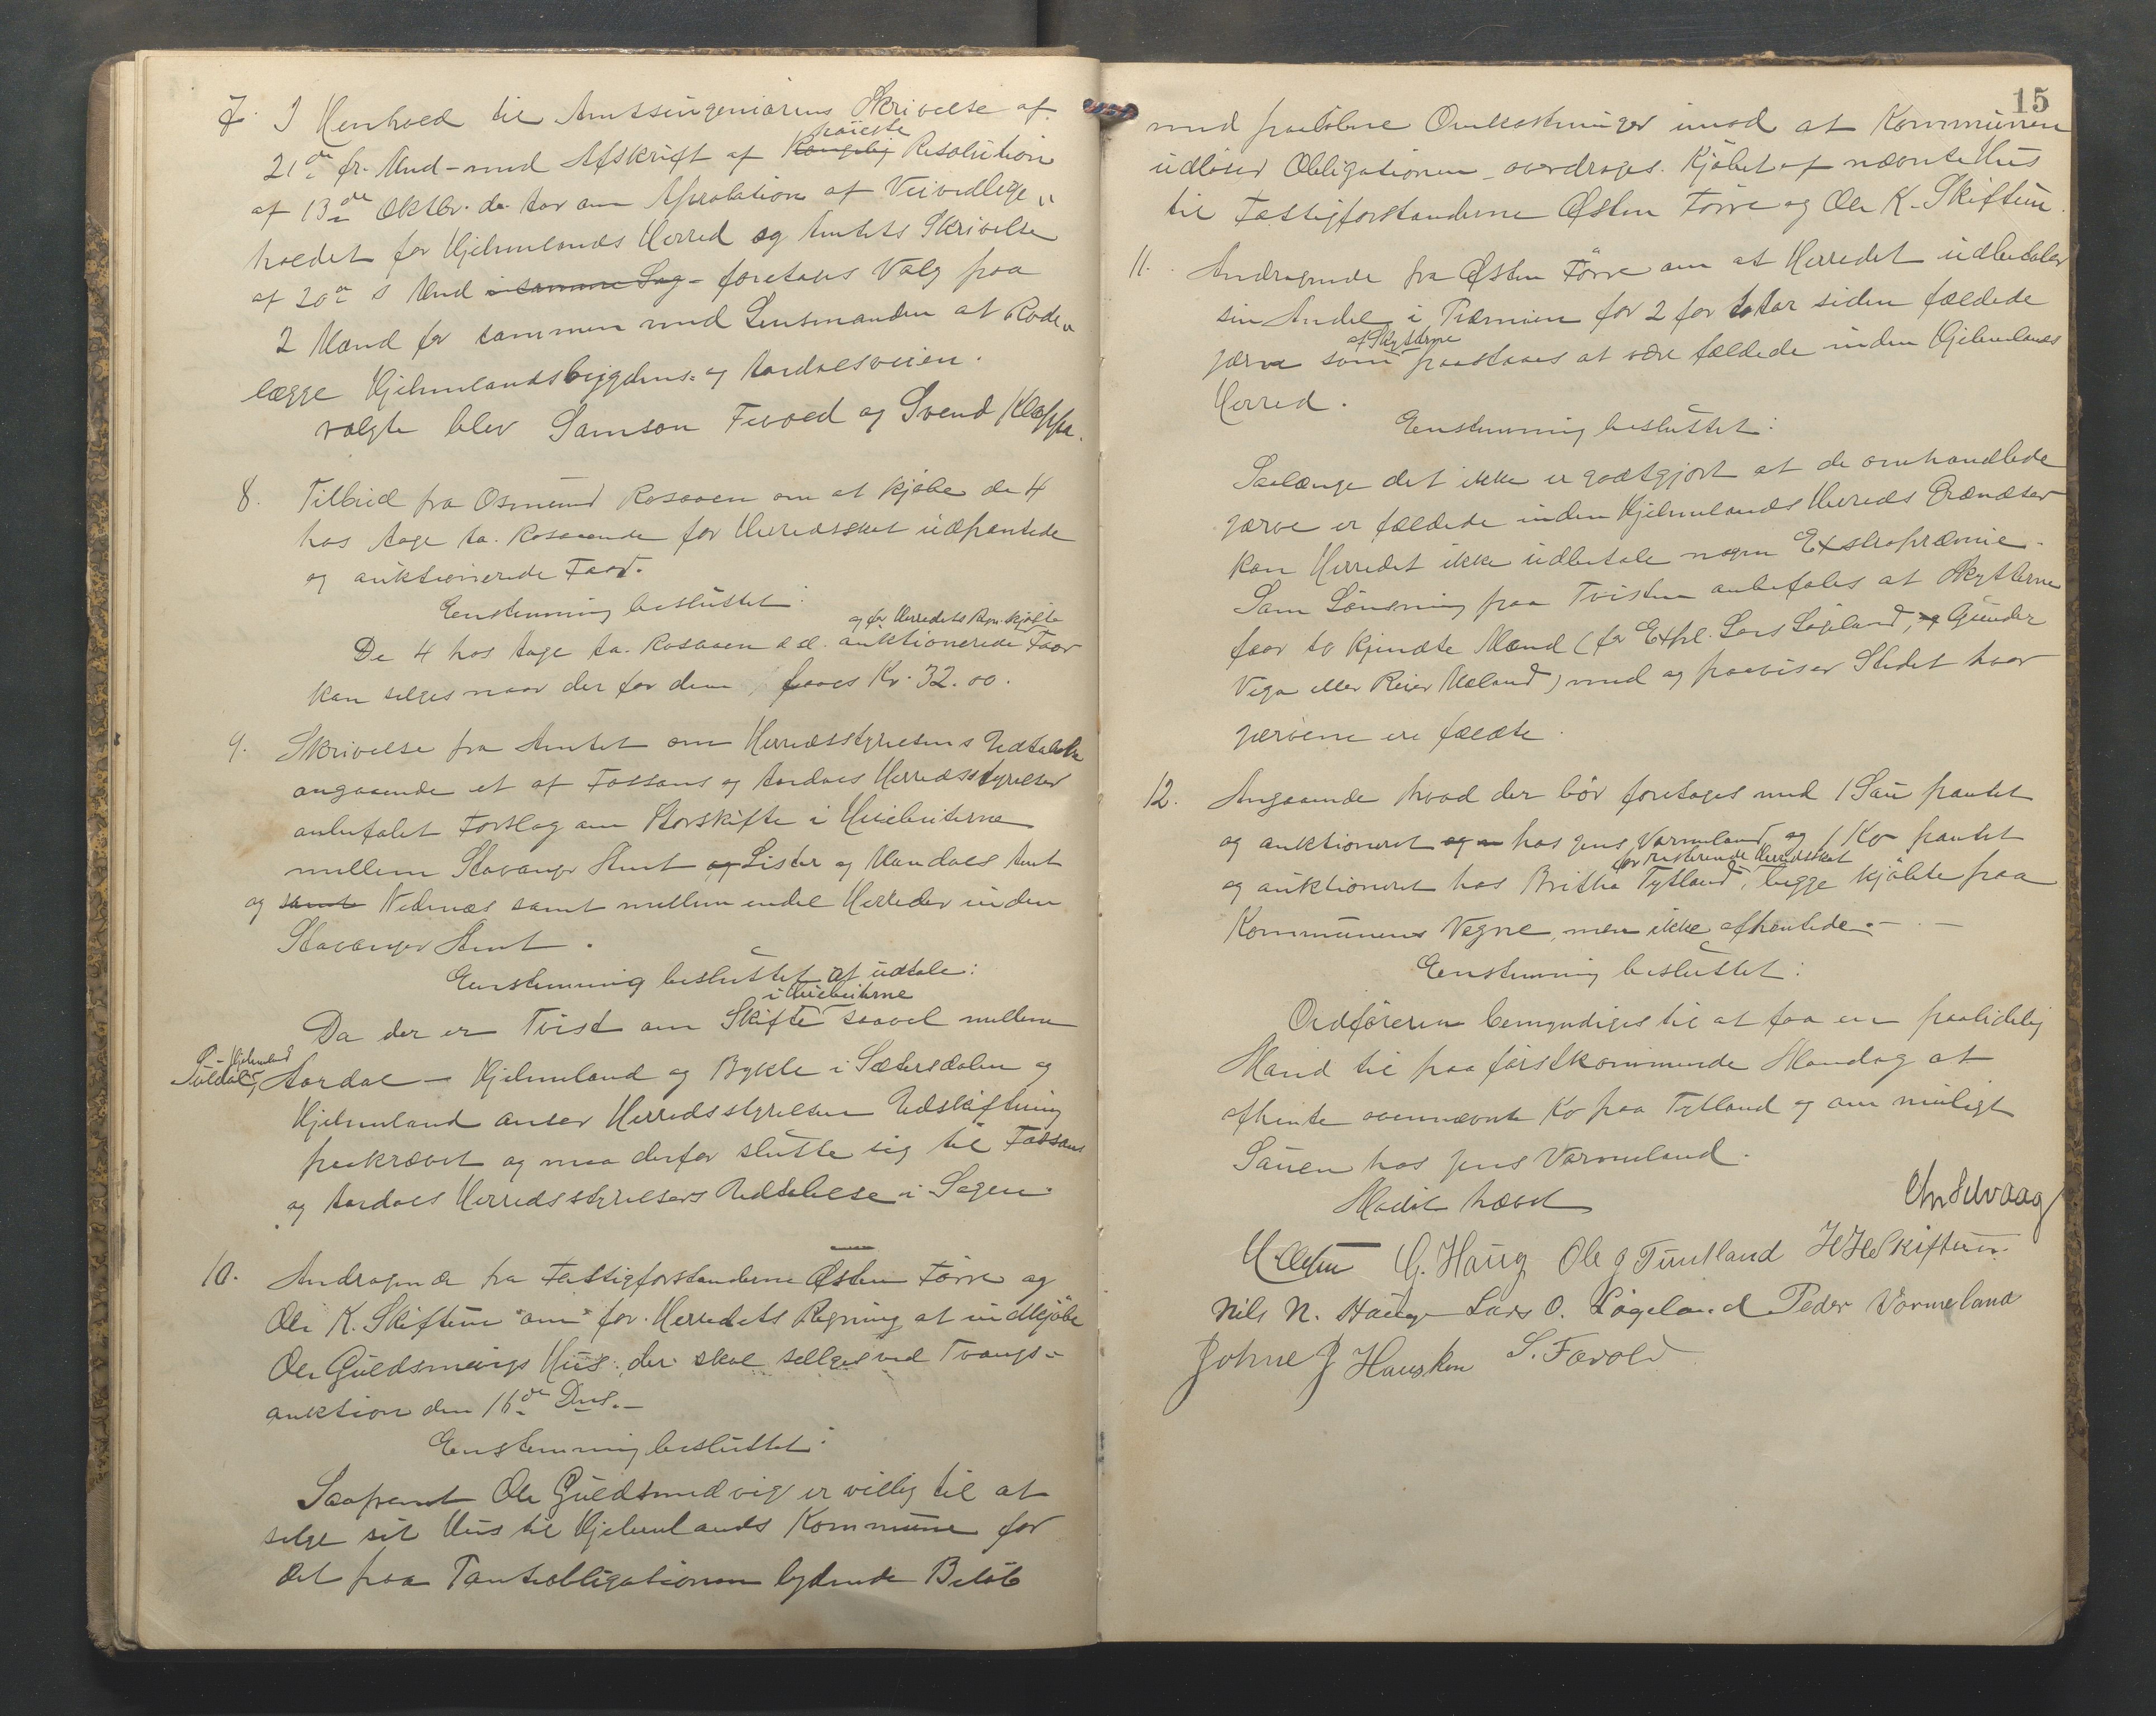 7. I Henhold til Amtsingeniørens Skrivelse af
21de fr. Mnd - med Afskrift af Kongelig høieste Resolution
af 13de Oktbr. d. Aar om Aprobation af Veivedlige„
holdet for Hjelmelands Herred og Amtets Skrivelse
af 20de s Mnd i samme Sag - foretages Valg paa
2 Mænd for sammen med Lensmanden at Rode„
lægge Hjelmelandsbygdens- og Aardalsveien.
valgte blev Samson Fevold og Svend Kleppa.
8. Tilbud fra Osmund Rosaaen om at kjøbe de 4
hos Aage Aa. Rosaaen for Herredsskat udpantede
og auktionerede Faar.
Enstemmig besluttet:
og for Herredets Regn. kjøbte
De 4 hos Aage Aa. Rosaaen auktionerede Faar
kan selges naar der for dem faaes Kr. 32.00.
9. Skrivelse fra Amtet om Herredsstyrelsens Udtalelse
angaaende et af Fossans og Aardals Herredsstyrelser
anbefalet Forslag om Storskifte i Heiebeiterne
mellem Stavanger Amt og Lister og Mandals Amt
og samt Nedenæs samt mellem endel Herreder inden
Stavanger Amt.
Enstemmig besluttet at udtale:
i Heiebeiterne
Da der er Tvist om Skifte saavel mellem
Hjelmeland
Suldal og Aardal - Hjelmeland og Bykle i Sætersdalen og
Hjelmeland anser Herredsstyrelsen Udskiftning
paakrævet og maa derfor slutte sig til Fossans
og Aardals Herredsstyrelsers Udtalelse i Sagen.
10. Andragende fra Fattigforstanderne Østen Førre og
Ole K. Skiftun om for Herredets Regning at indkjøbe
Ole Guldsmevigs Hus, der skal selges ved Tvangs-
auktion den 16de Dns.-
Enstemmig besluttet:
Saafremt Ole Guldsmedvig er villig til at
selge sit Hus til Hjelmelands Kommune for
det paa Panteobligationen lydende Beløb
15
med paaløbne Omkostninger imod at Kommunen
udløser Obligationen overdrages Kjøbet af nævnte Hus
til Fattigforstanderne Østen Førre og Ole K. Skiftun.
11. Andragende fra Østen Førre om at Herredet udbetaler
sin Andel i Præmien for 2 for to Aar siden fældede
af Skytterne
jærve som paastaaes at være fældede inden Hjelmelands
Herred.
Enstemmig besluttet:
Saalænge det ikke er godtgjort at de omhandlede
jærve er fældede inden Hjelmelands Herreds Grændser
kan Herredet ikke udbetale nogen Extrapræmie.
Som Løsning paa Tvisten anbefales at Skytterne
faar to kjendte Mænd (for Expl. Lars Løgeland, og Gunder
Vega eller Reier Mæland) med og paaviser Stedet hvor
jærvene ere fældte.
12. Angaaende hvad der bør foretages med 1 Sau pantet
og auktioneret og hos Jens Vormeland og 1 Ko pantet
for resterende Herredsskat
og auktioneret hos Britha Tytland, begge kjøbte paa
Kommunens Vegne, men ikke afhentede.-
Enstemmig besluttet:
Ordføreren bemyndiges til at faa en paalidelig
Mand til paa førstkommende Mandag at
afhente ovennævnte Ko paa Tytland og om muligt
Sauen hos Jens Vormeland.
Mødet hævet
Chr Selvaag
G. Haug Ole J Tuntland H H Skiftun.
Nils N. Hauge Lars O. Løgeland Peder Vormeland
Johne J Hausken S. Fævold